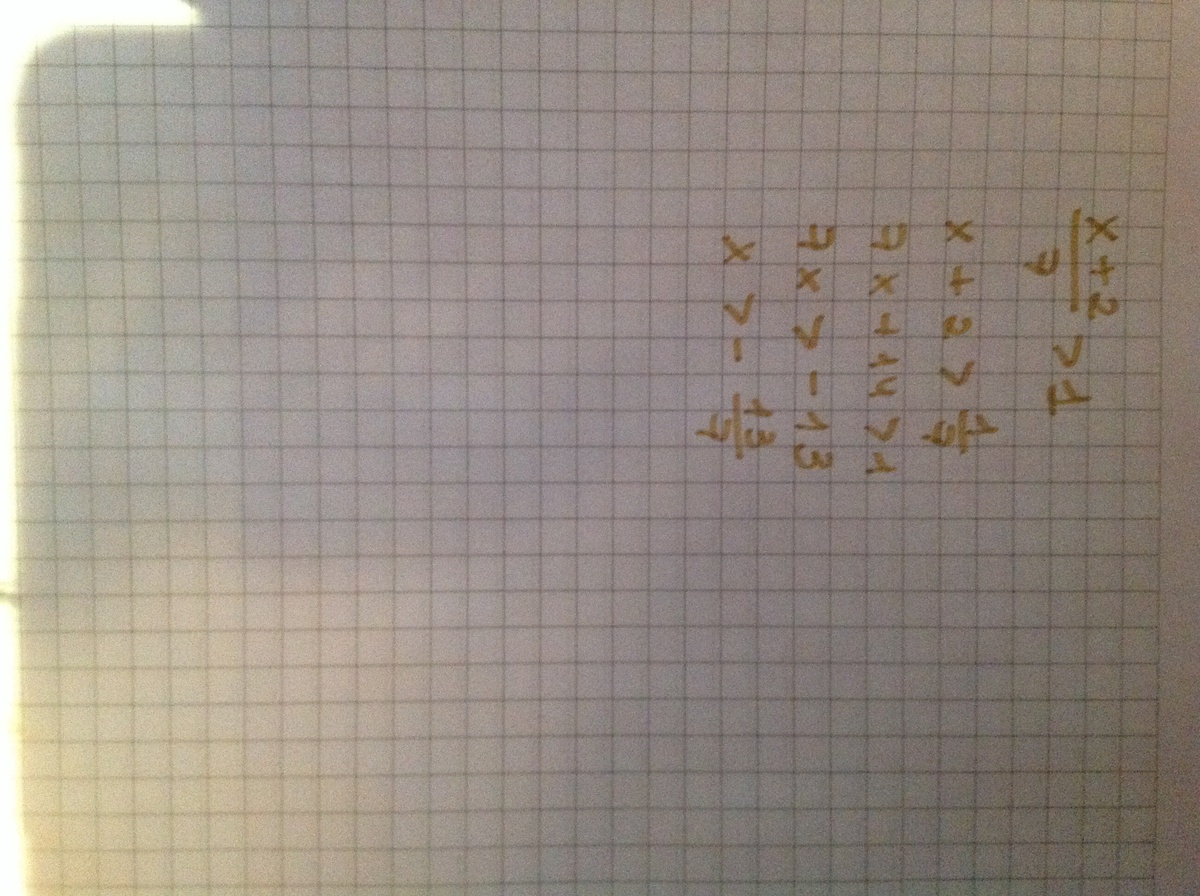 x+2/7 > 1
x + 2 > 1/7
7x + 14 > 1
7x > -13
x > - 13/7